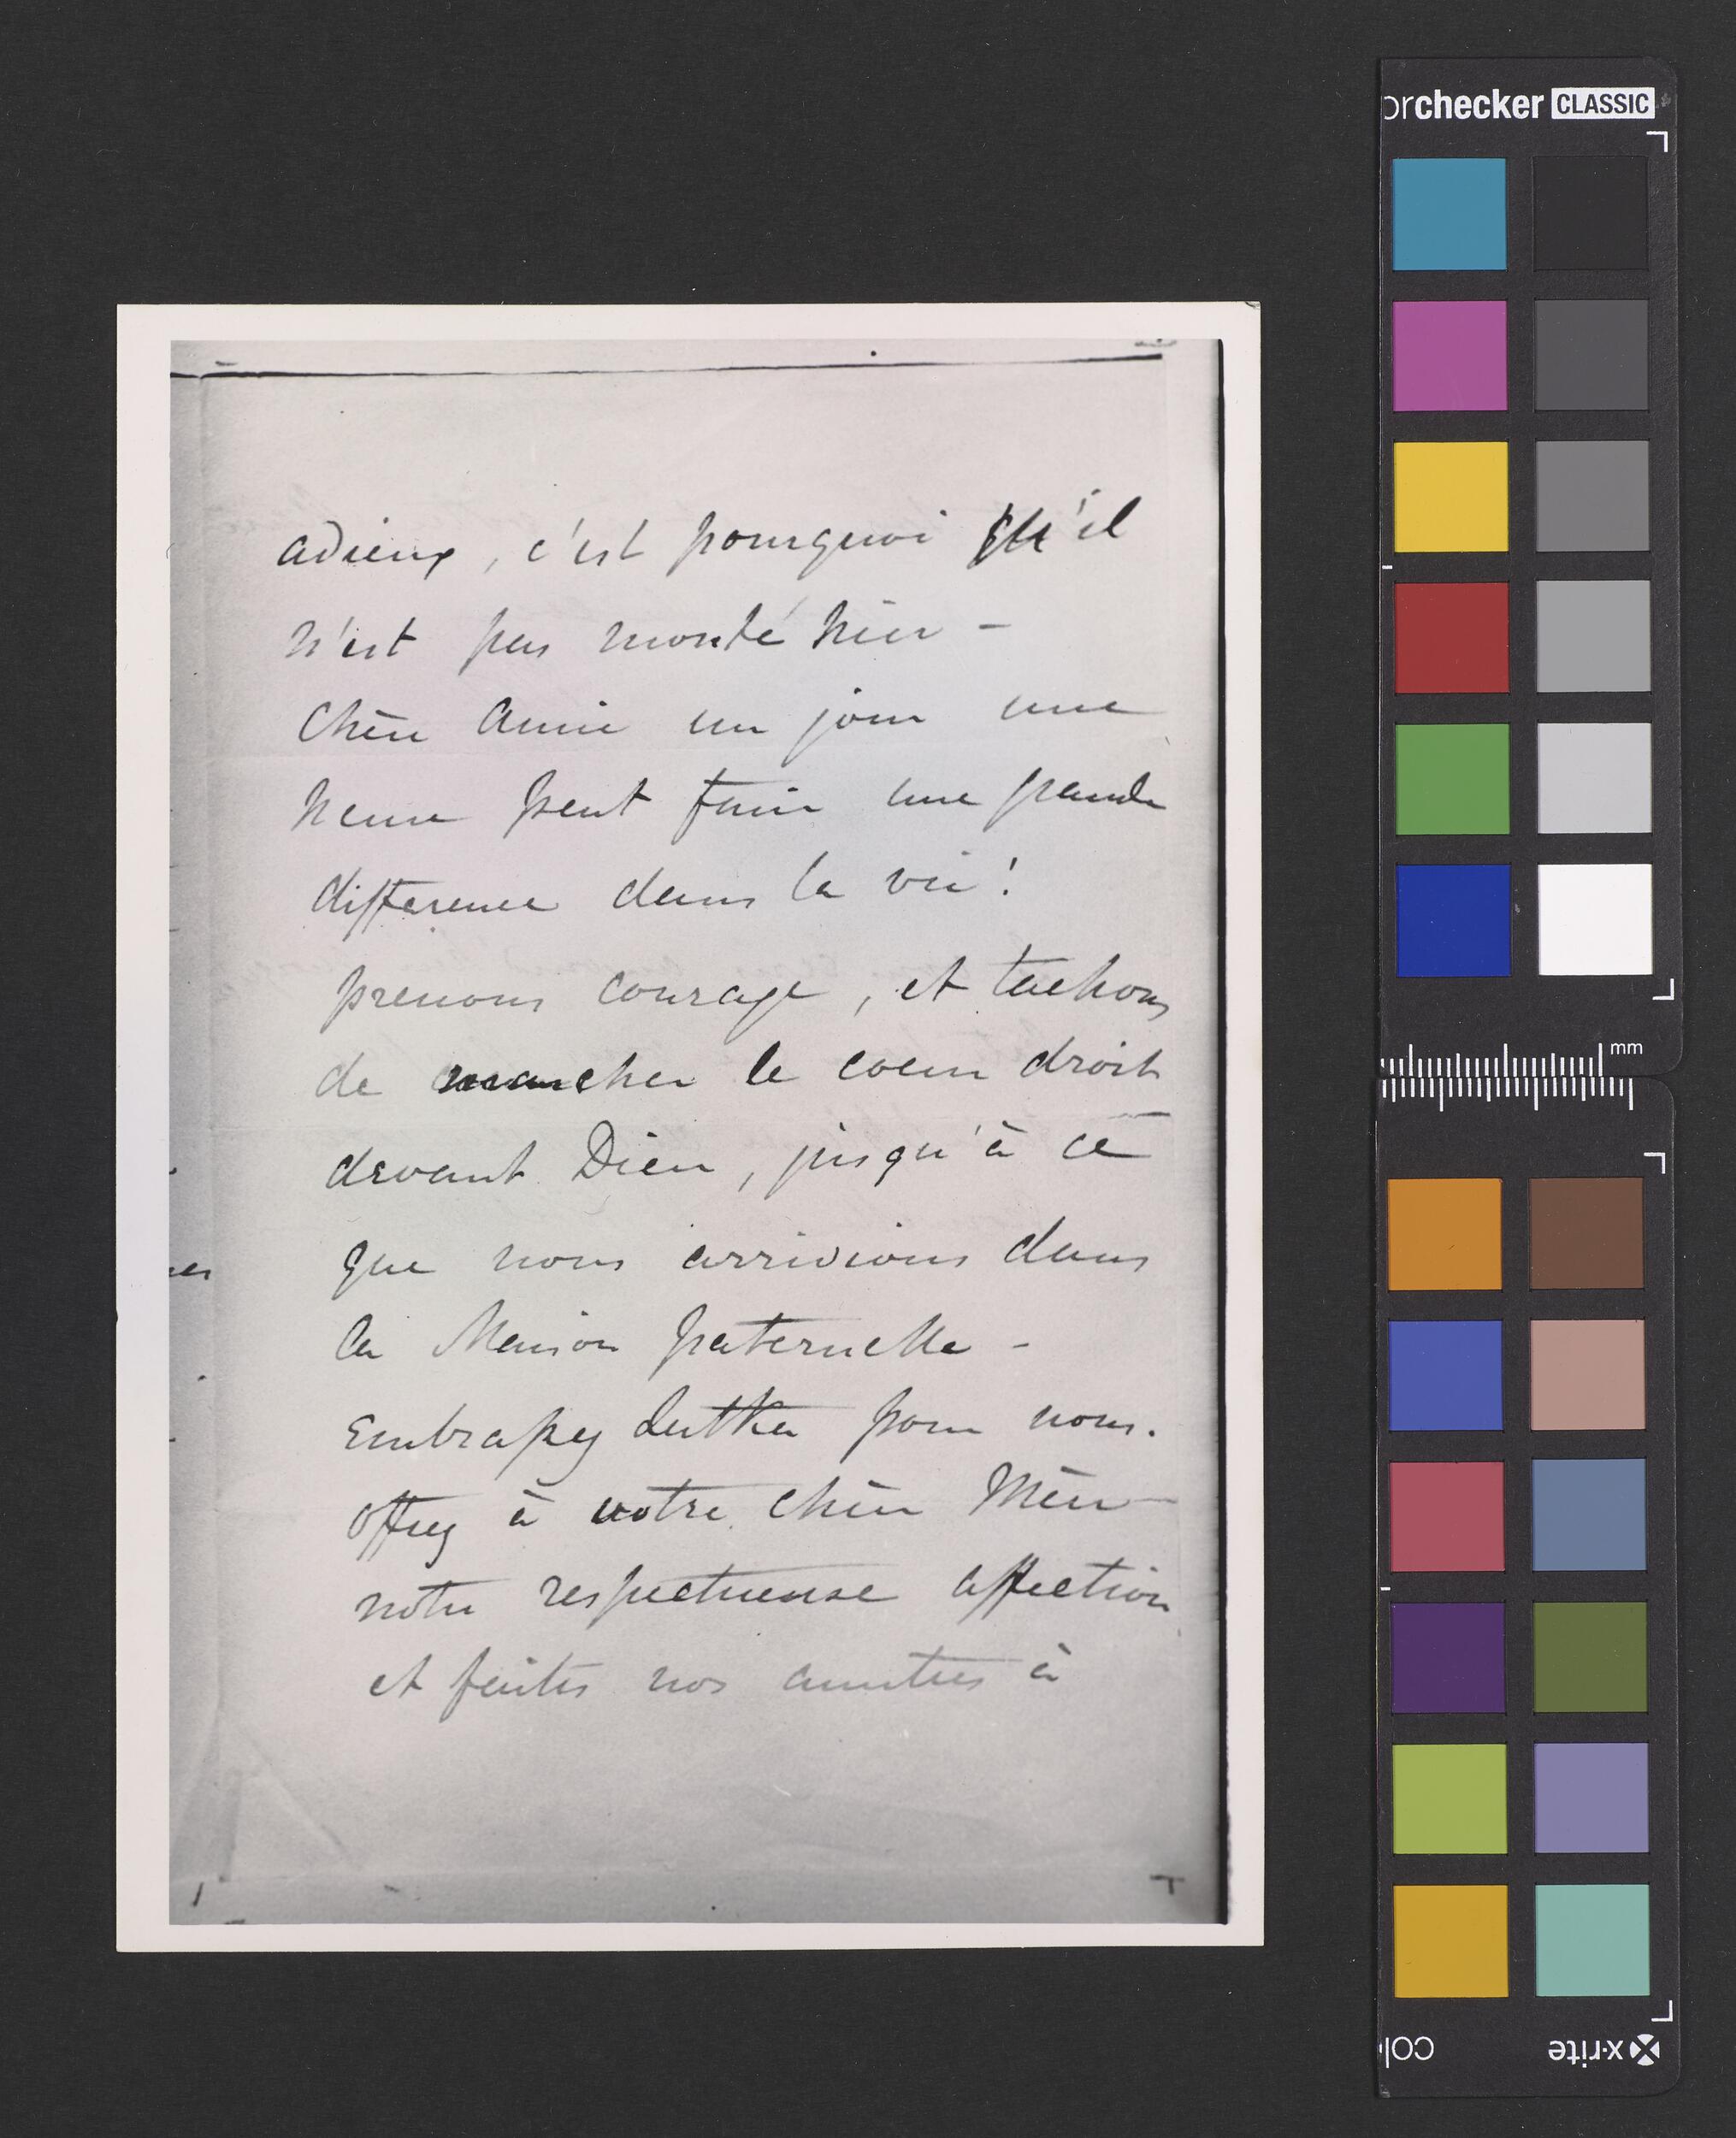 orchecker CLASSIC
adieux, c'est pourquoi qu'il
n'est pas monté hier -
Chère Amie un jour une
heure peut faire une grande
difference dans la vie!
prenons courage, et tachons
de marcher le coeur droit
devant Dieu, jusqu'à ce
que nous arrivions dans
la Maison paternelle -
Embrassez pour nous.
offrez à votre chère Mère
notre respectueuse affection
et faites nos amitiés à
mm
x-rite
col